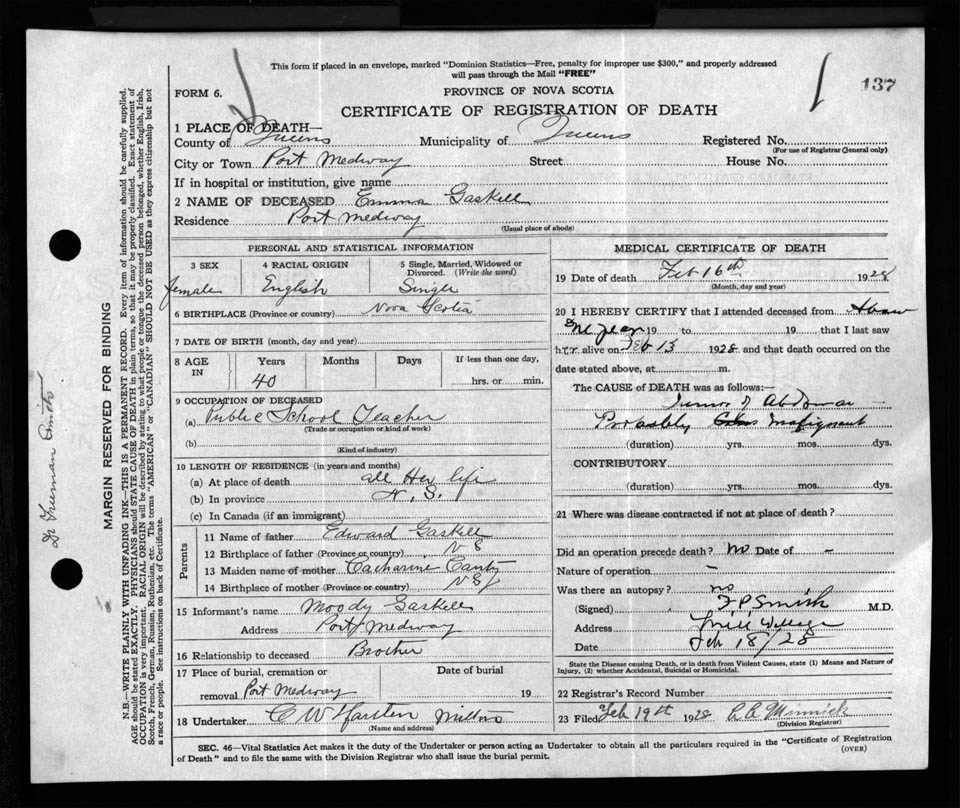 This form if placed in an envelope, marked "Dominion Statistics—Free, penalty for improper use $300," and properly addressed
will pass through the Mail "FREE"
137
FORM 6.
PROVINCE OF NOVA SCOTIA
CERTIFICATE OF REGISTRATION OF DEATH
1 PLACE OF DEATH—
County of Queens Municipality of Queens Registered No.
(For use of Registrar General only)
City or Town Port Medway Street House No.
If in hospital or institution, give name
2 NAME OF DECEASED Emma Gaskell
Residence Port Medway
(Usual place of abode)
PERSONAL AND STATISTICAL INFORMATION
3 SEX 4 RACIAL ORIGIN 5 Single, Married, Widowed or
Divorced. (Write the word)
female English Single
6 BIRTHPLACE (Province or country) Nova Scotia
7 DATE OF BIRTH (month, day and year)
8 AGE IN Years Months Days If less than one day,
40 hrs. or min.
9 OCCUPATION OF DECEASED
(a) Public School Teacher
(Trade or occupation or kind of work)
(b)
(Kind of industry)
10 LENGTH OF RESIDENCE (in years and months)
(a) At place of death all Her life
(b) In province N. S.
(c) In Canada (if an immigrant)
Parents
11 Name of father Edward Gaskell
12 Birthplace of father (Province or country) N S
13 Maiden name of mother Catharine
14 Birthplace of mother (Province or country) N S
15 Informant's name Moody Gaskell
Address Port Medway
16 Relationship to deceased Brother
17 Place of burial, cremation or Date of burial
removal Port Medway 19
18 Undertaker C W Milton
(Name and address)
MEDICAL CERTIFICATE OF DEATH
19 Date of death Feb 16th 1928
(Month, day and year)
20 I HEREBY CERTIFY that I attended deceased from
year 19 to 19 that I last saw
her alive on Feb 13 1928 and that death occurred on the
date stated above, at m.
The CAUSE OF DEATH was as follows:
Tumor of Abdomen
Probably Malignant
(duration) yrs. mos. dys.
CONTRIBUTORY
(duration) yrs. mos. dys.
21 Where was disease contracted if not at place of death?
Did an operation precede death? no Date of -
Nature of operation -
Was there an autopsy? no
(Signed) F P Smith M.D.
Address Mill Village
Date Feb 18/28
State the Disease causing Death, or in death from Violent Causes, state (1) Means and Nature of
Injury, (2) whether Accidental, Suicidal or Homicidal.
22 Registrar's Record Number
23 Filed Feb 19th 1928 Minnick
(Division Registrar)
SEC. 46—Vital Statistics Act makes it the duty of the Undertaker or person acting as Undertaker to obtain all the particulars required in the "Certificate of Registration
of Death" and to file the same with the Division Registrar who shall issue the burial permit.
(OVER)
MARGIN RESERVED FOR BINDING
N.B.—WRITE PLAINLY WITH UNFADING INK—THIS IS A PERMANENT RECORD. Every item of information should be carefully supplied.
AGE should be stated EXACTLY. PHYSICIANS should STATE CAUSE OF DEATH in plain terms, so that it may be properly classified. Exact statement of
OCCUPATION is very important. RACIAL ORIGIN will be described by stating to what people or tongue the deceased person belonged, whether English, Irish,
Scotch, French, German, Russian, Ruthenian, etc. The terms "AMERICAN" or "CANADIAN" SHOULD NOT BE USED as they express citizenship but not
a race or people. See instructions on back of Certificate.
Dr Freeman Smith